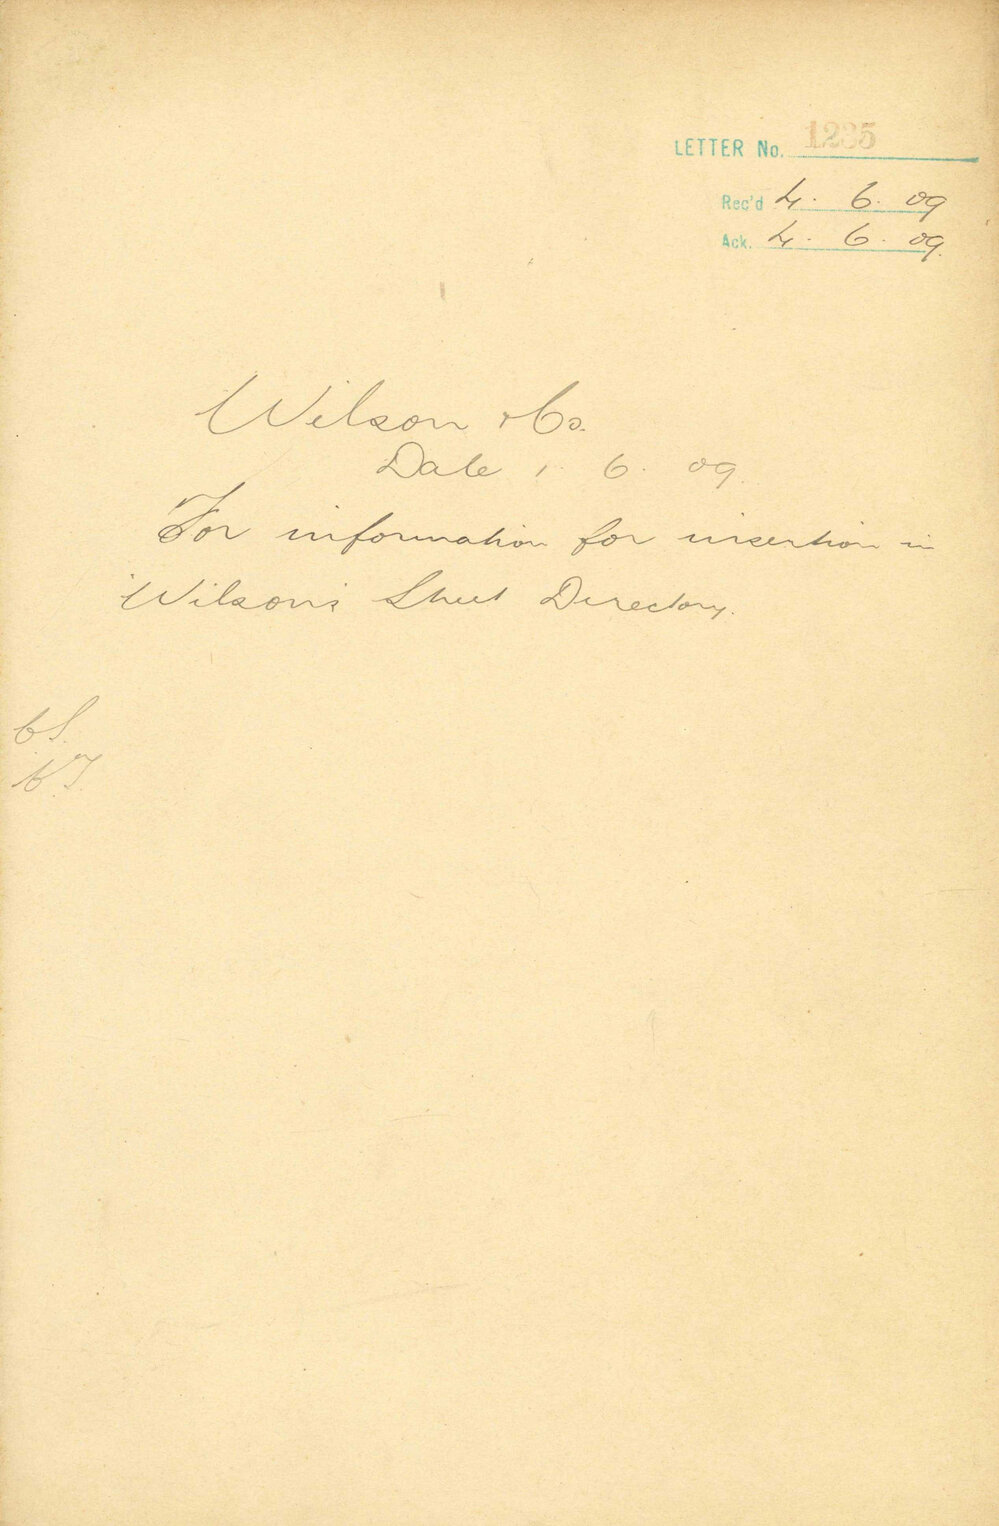 LETTER No. 1235
Rec'd 4. 6. 09
Ack. 4. 6. 09.
Wilson & Co.
Date 1. 6. 09.
For information for insertion in
Wilson's Street Directory.